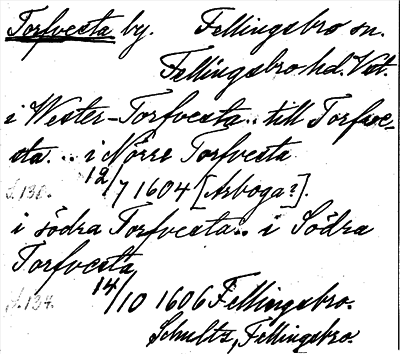 Torfvesta by. Fellingsbro sn.
Fellingsbro hd. Vst.
i Wester-Torfvesta.. till Torfve-
sta... i Nörre Torfvesta
s. 130. 12/7 1604 [Arboga?].
i södra Torfvesta.. i Södra
Torfvesta
s. 134. 14/10 1606 Fellingsbro.
Schultz, Fellingsbro.